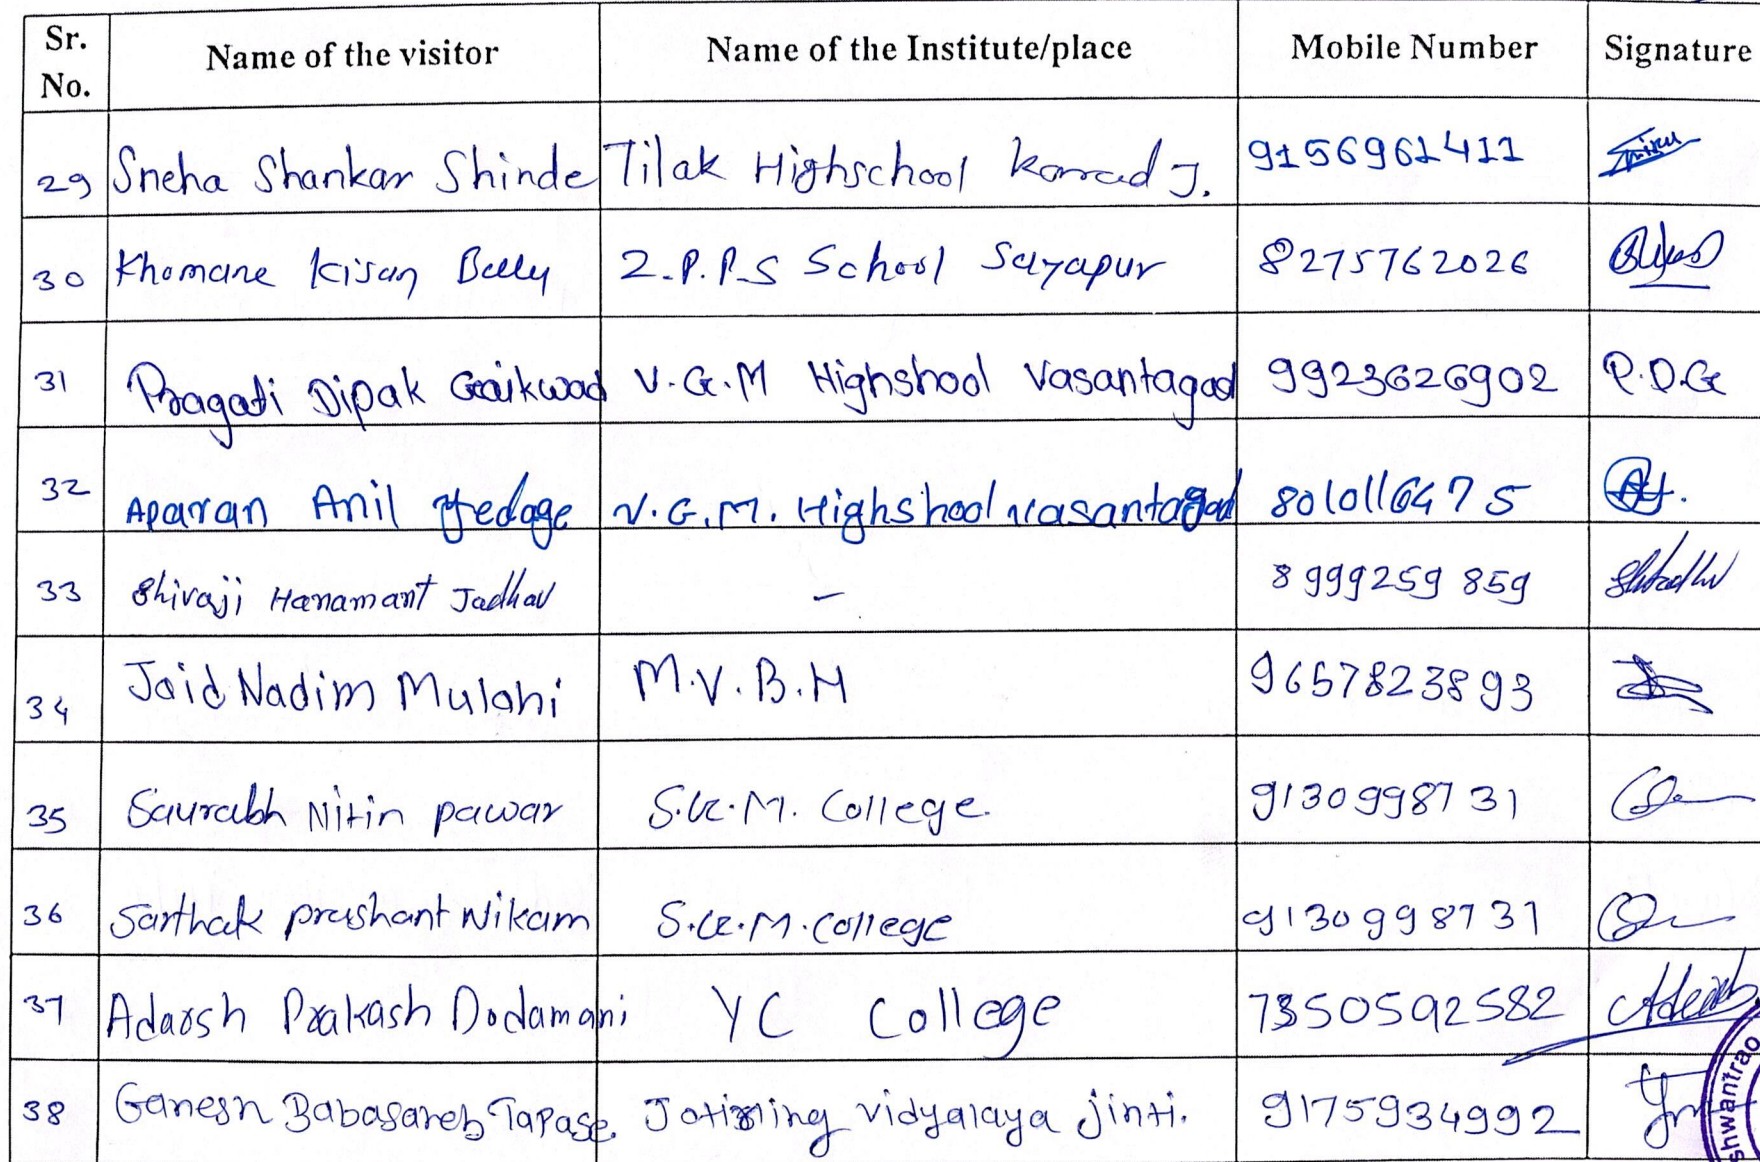 Sr. No. Name of the visitor Name of the Institute/place Mobile Number Signature
29 Sneha Shankar Shinde Tilak Highschool Karad J. 9156961411
30 Khomane Kisan 2.P.P.S School Sayapur 8275762026
31 Pragati Dipak Gaikwad V.G.M Highshool Vasantagad 9923626902 P.D.G
32 Aparan Anil Yedage V.G.M. Highshool Vasantagad 8010116475
33 Shivaji Hanamant Jadhav - 8999259859
34 Joid Nadim Mulani M.V.B.H 9657823893
35 Saurabh Nitin pawar S.G.M. College. 9130998731
36 Sarthak prashant Nikam S.G.M. College 9130998731
37 Adarsh Prakash Dodamani YC College 7350592582
38 Ganesh Babasaheb Tapase. Jotirling vidyalaya jinti. 9175934992
shwantrao